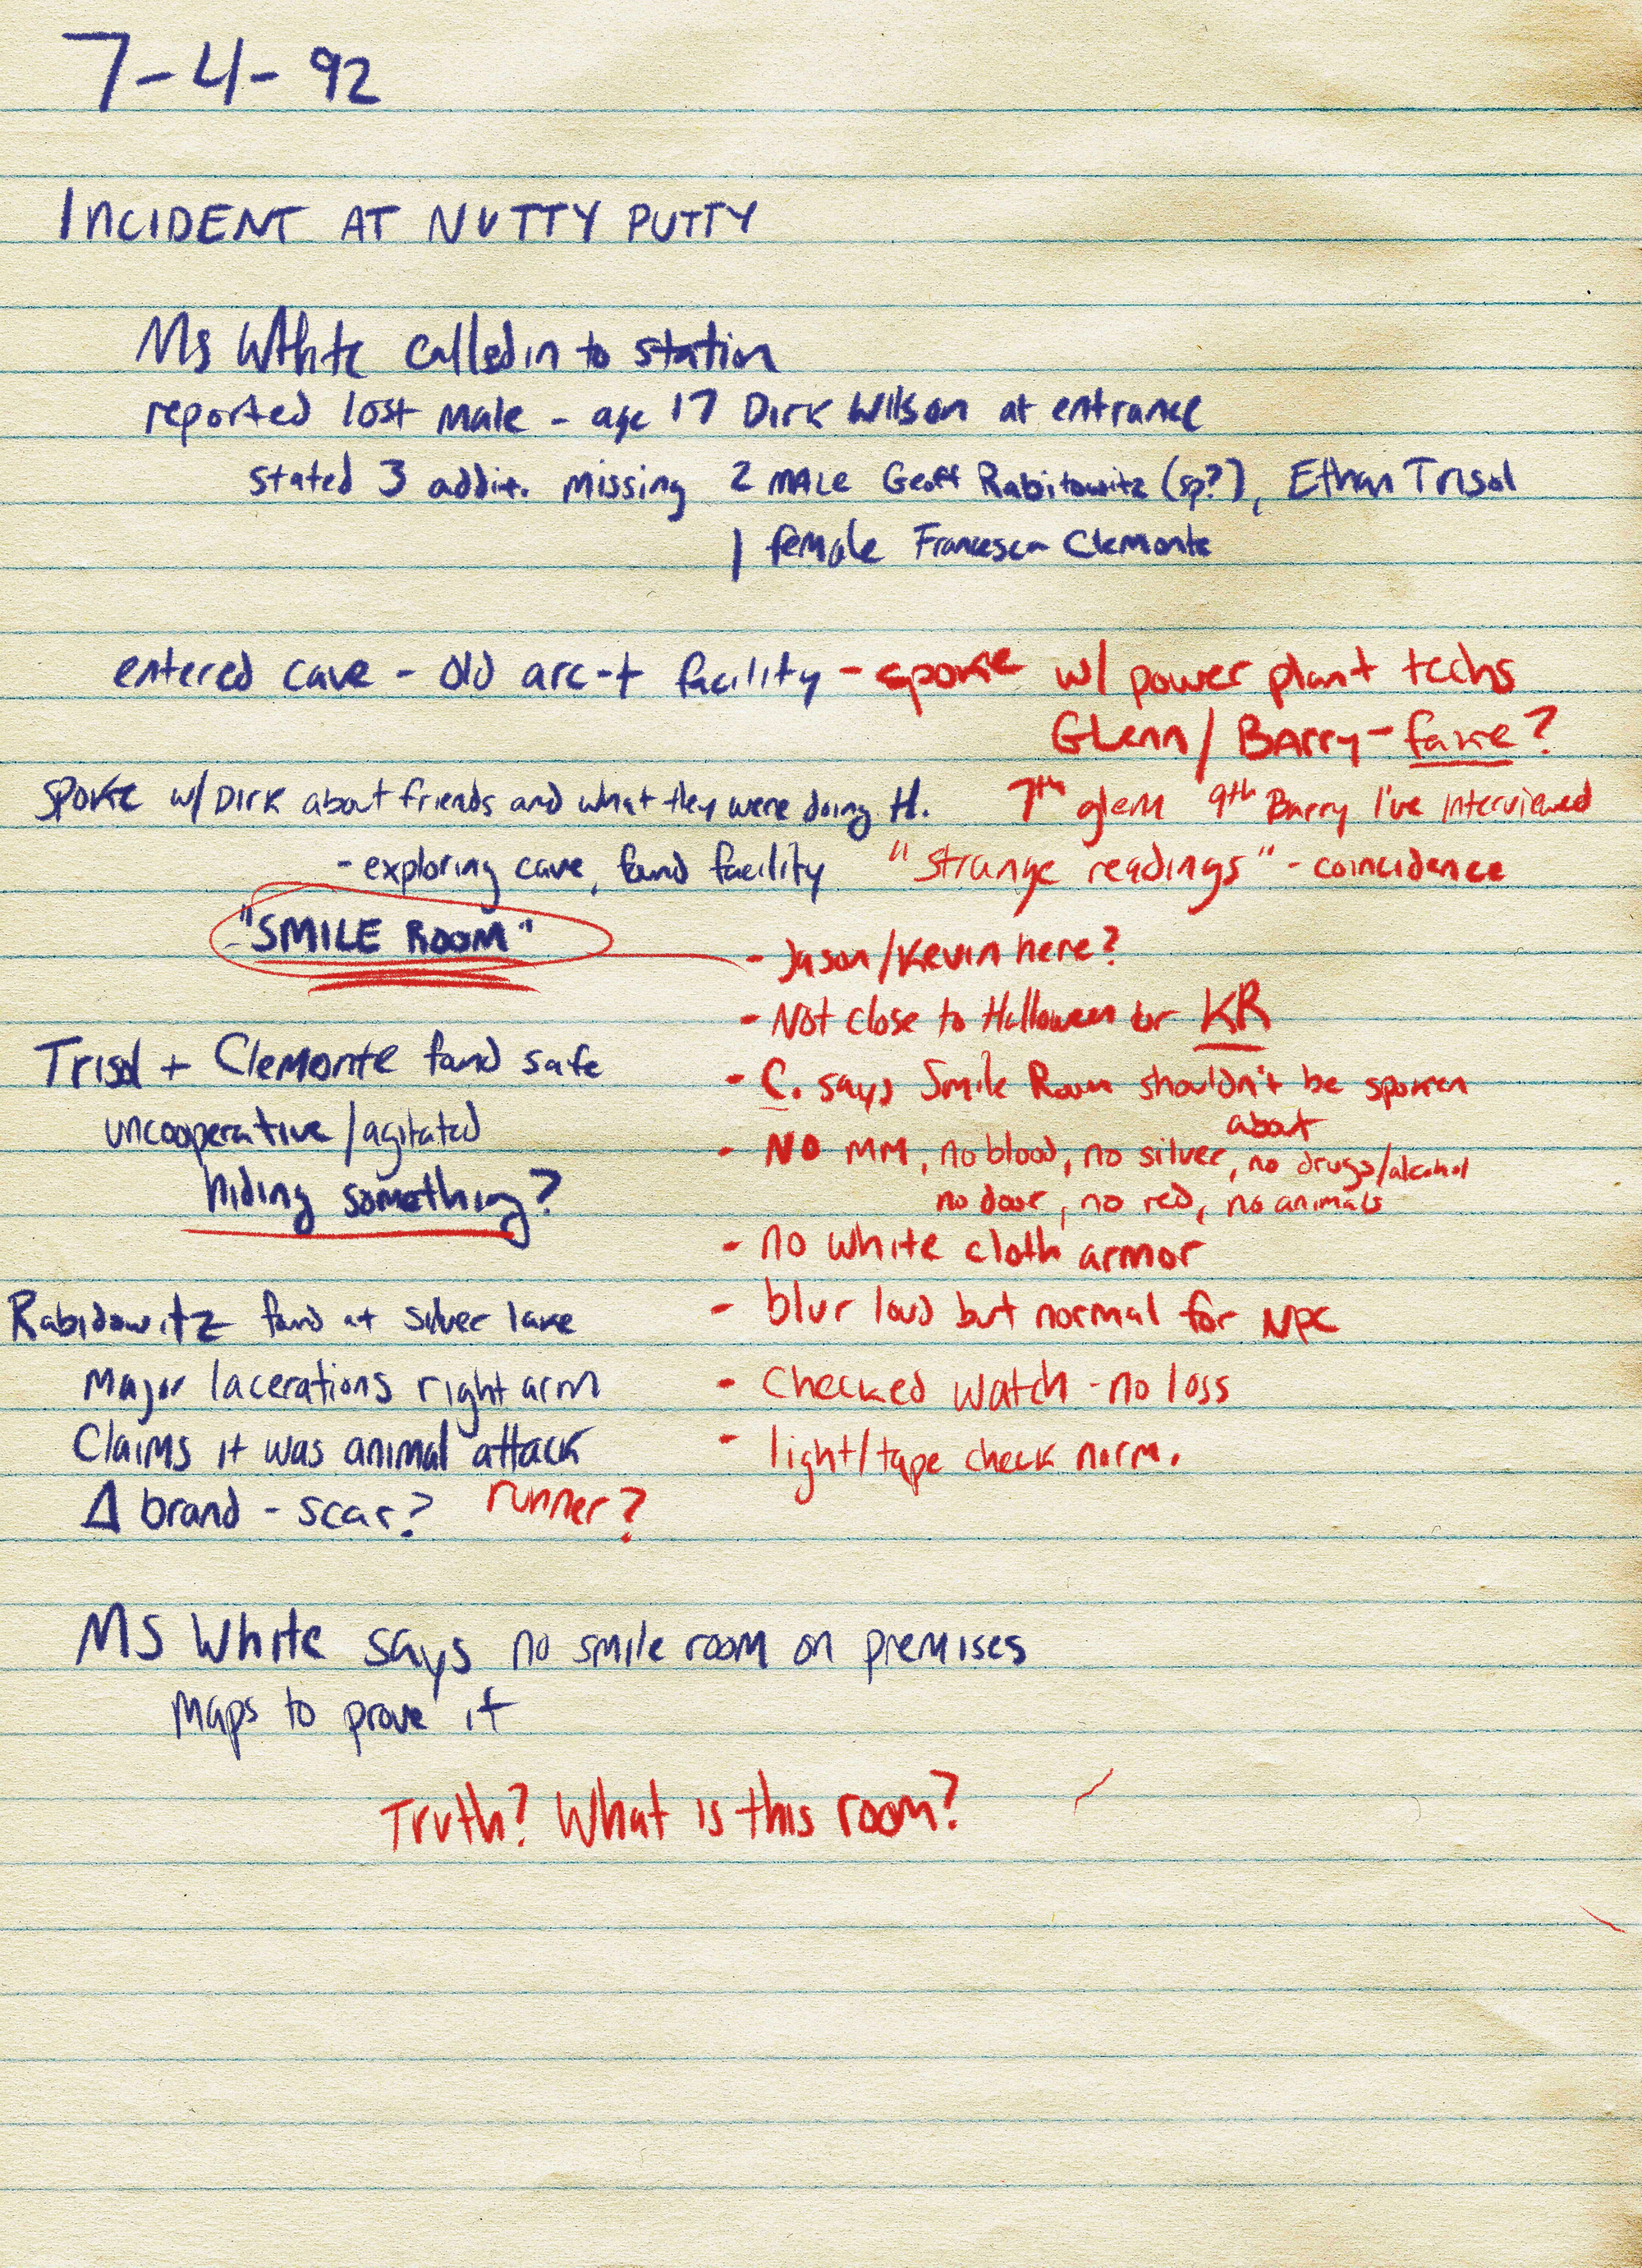 7-4-92
INCIDENT AT NUTTY PUTTY
Ms White called in to station
reported lost male - age 17 Dirk Wilson at entrance
stated 3 addit. missing 2 MALE Geoff Rabitowitz (sp?), Ethan Trisol
1 female Francesca Clemonte
entered cave - old arc-t facility - spoke w/ power plant techs
Glenn/Barry - fake?
Spoke w/ Dirk about friends and what they were doing H.
7th glenn 9th Barry I've interviewed
- exploring cave, found facility
"strange readings" - coincidence
- "SMILE ROOM"
- Jason/Kevin here?
- Not close to Halloween or KR
- C. says Smile Room shouldn't be spoken
about
- NO MM, no blood, no silver, no drugs/alcohol
no door, no red, no animals
- no white cloth armor
- blur loud but normal for NPC
- Checked watch - no loss
- light/tape check norm.
Trisol + Clemonte found safe
uncooperative/agitated
hiding something?
Rabidowitz found at silver lake
Major lacerations right arm
Claims it was animal attack
Δ brand - scar? runner?
Ms White says no smile room on premises
maps to prove it
Truth? What is this room?